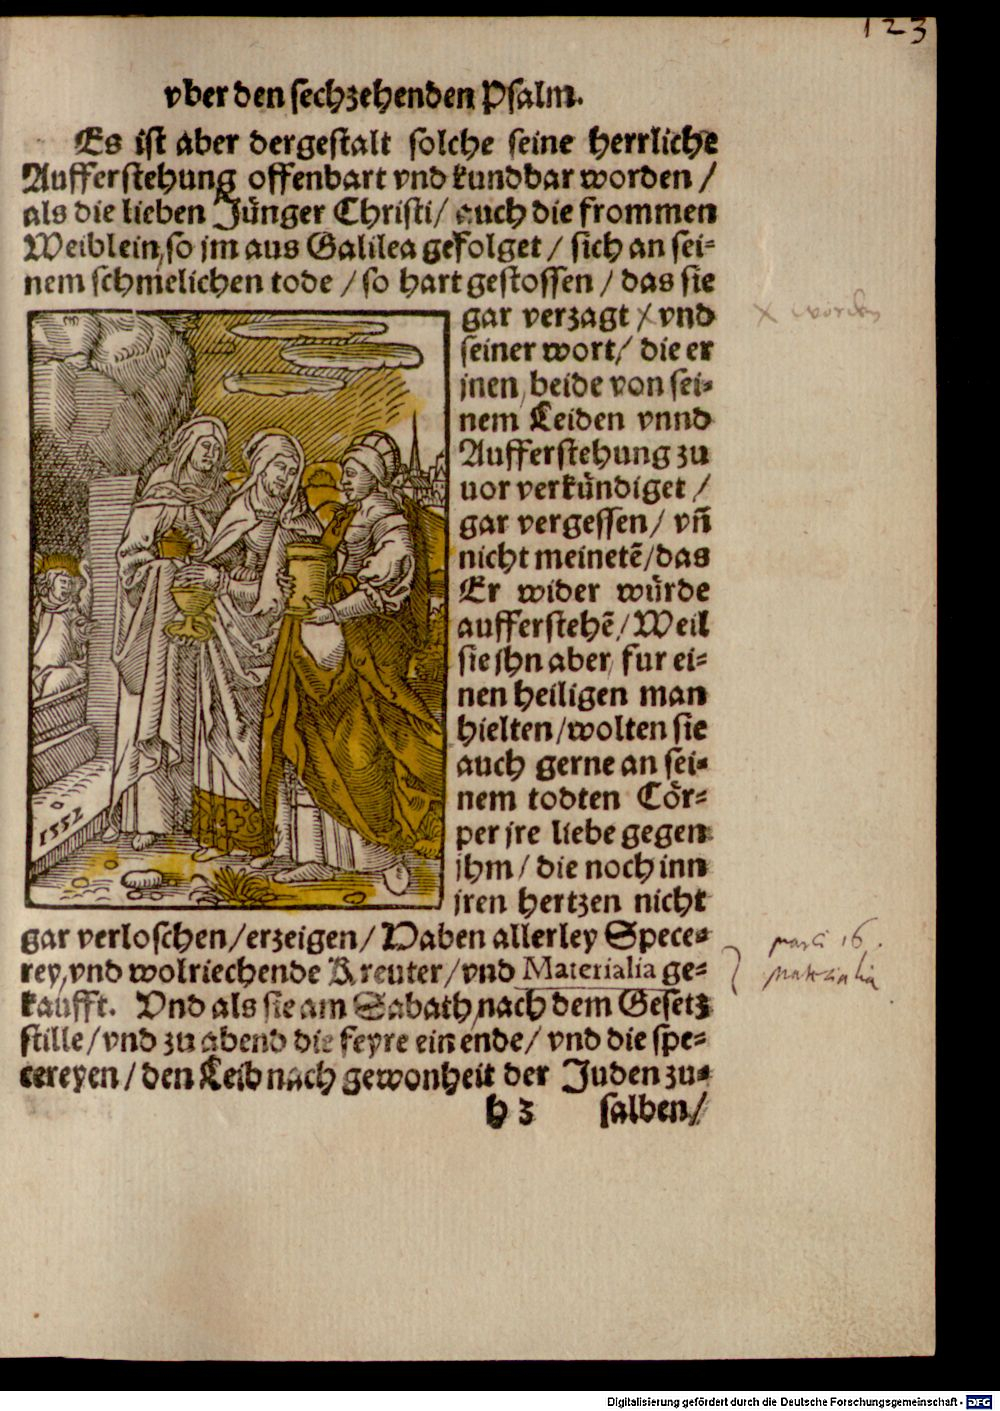 123
vber den sechzehenden Psalm.
Es ist aber dergestalt solche seine herrliche
Aufferstehung offenbart vnd kundbar worden /
als die lieben Jünger Christi / auch die frommen
Weiblein, so jm aus Galilea gefolget / sich an sei-
nem schmelichen tode / so hart gestossen / das sie
gar verzagt / vnd
x worden
seiner wort / die er
jnen, beide von sei-
nem Leiden vnnd
Aufferstehung zu
uor verkündiget /
gar vergessen / vñ
nicht meinetẽ / das
Er wider würde
aufferstehẽ / Weil
sie jhn aber, fur ei-
nen heiligen man
hielten / wolten sie
auch gerne an sei-
nem todten Cör-
per jre liebe gegen
jhm / die noch inn
jren hertzen nicht
1552
gar verloschen / erzeigen / Haben allerley Spece-
rey, vnd wolriechende Kreuter / vnd Materialia ge-
kaufft. Vnd als sie am Sabath, nach dem Gesetz
stille / vnd zu abend die feyre ein ende / vnd die spe-
cereyen / den Leib nach gewonheit der Juden zu-
h 3 salben /
16.
Materialia
Digitalisierung gefördert durch die Deutsche Forschungsgemeinschaft - DFG